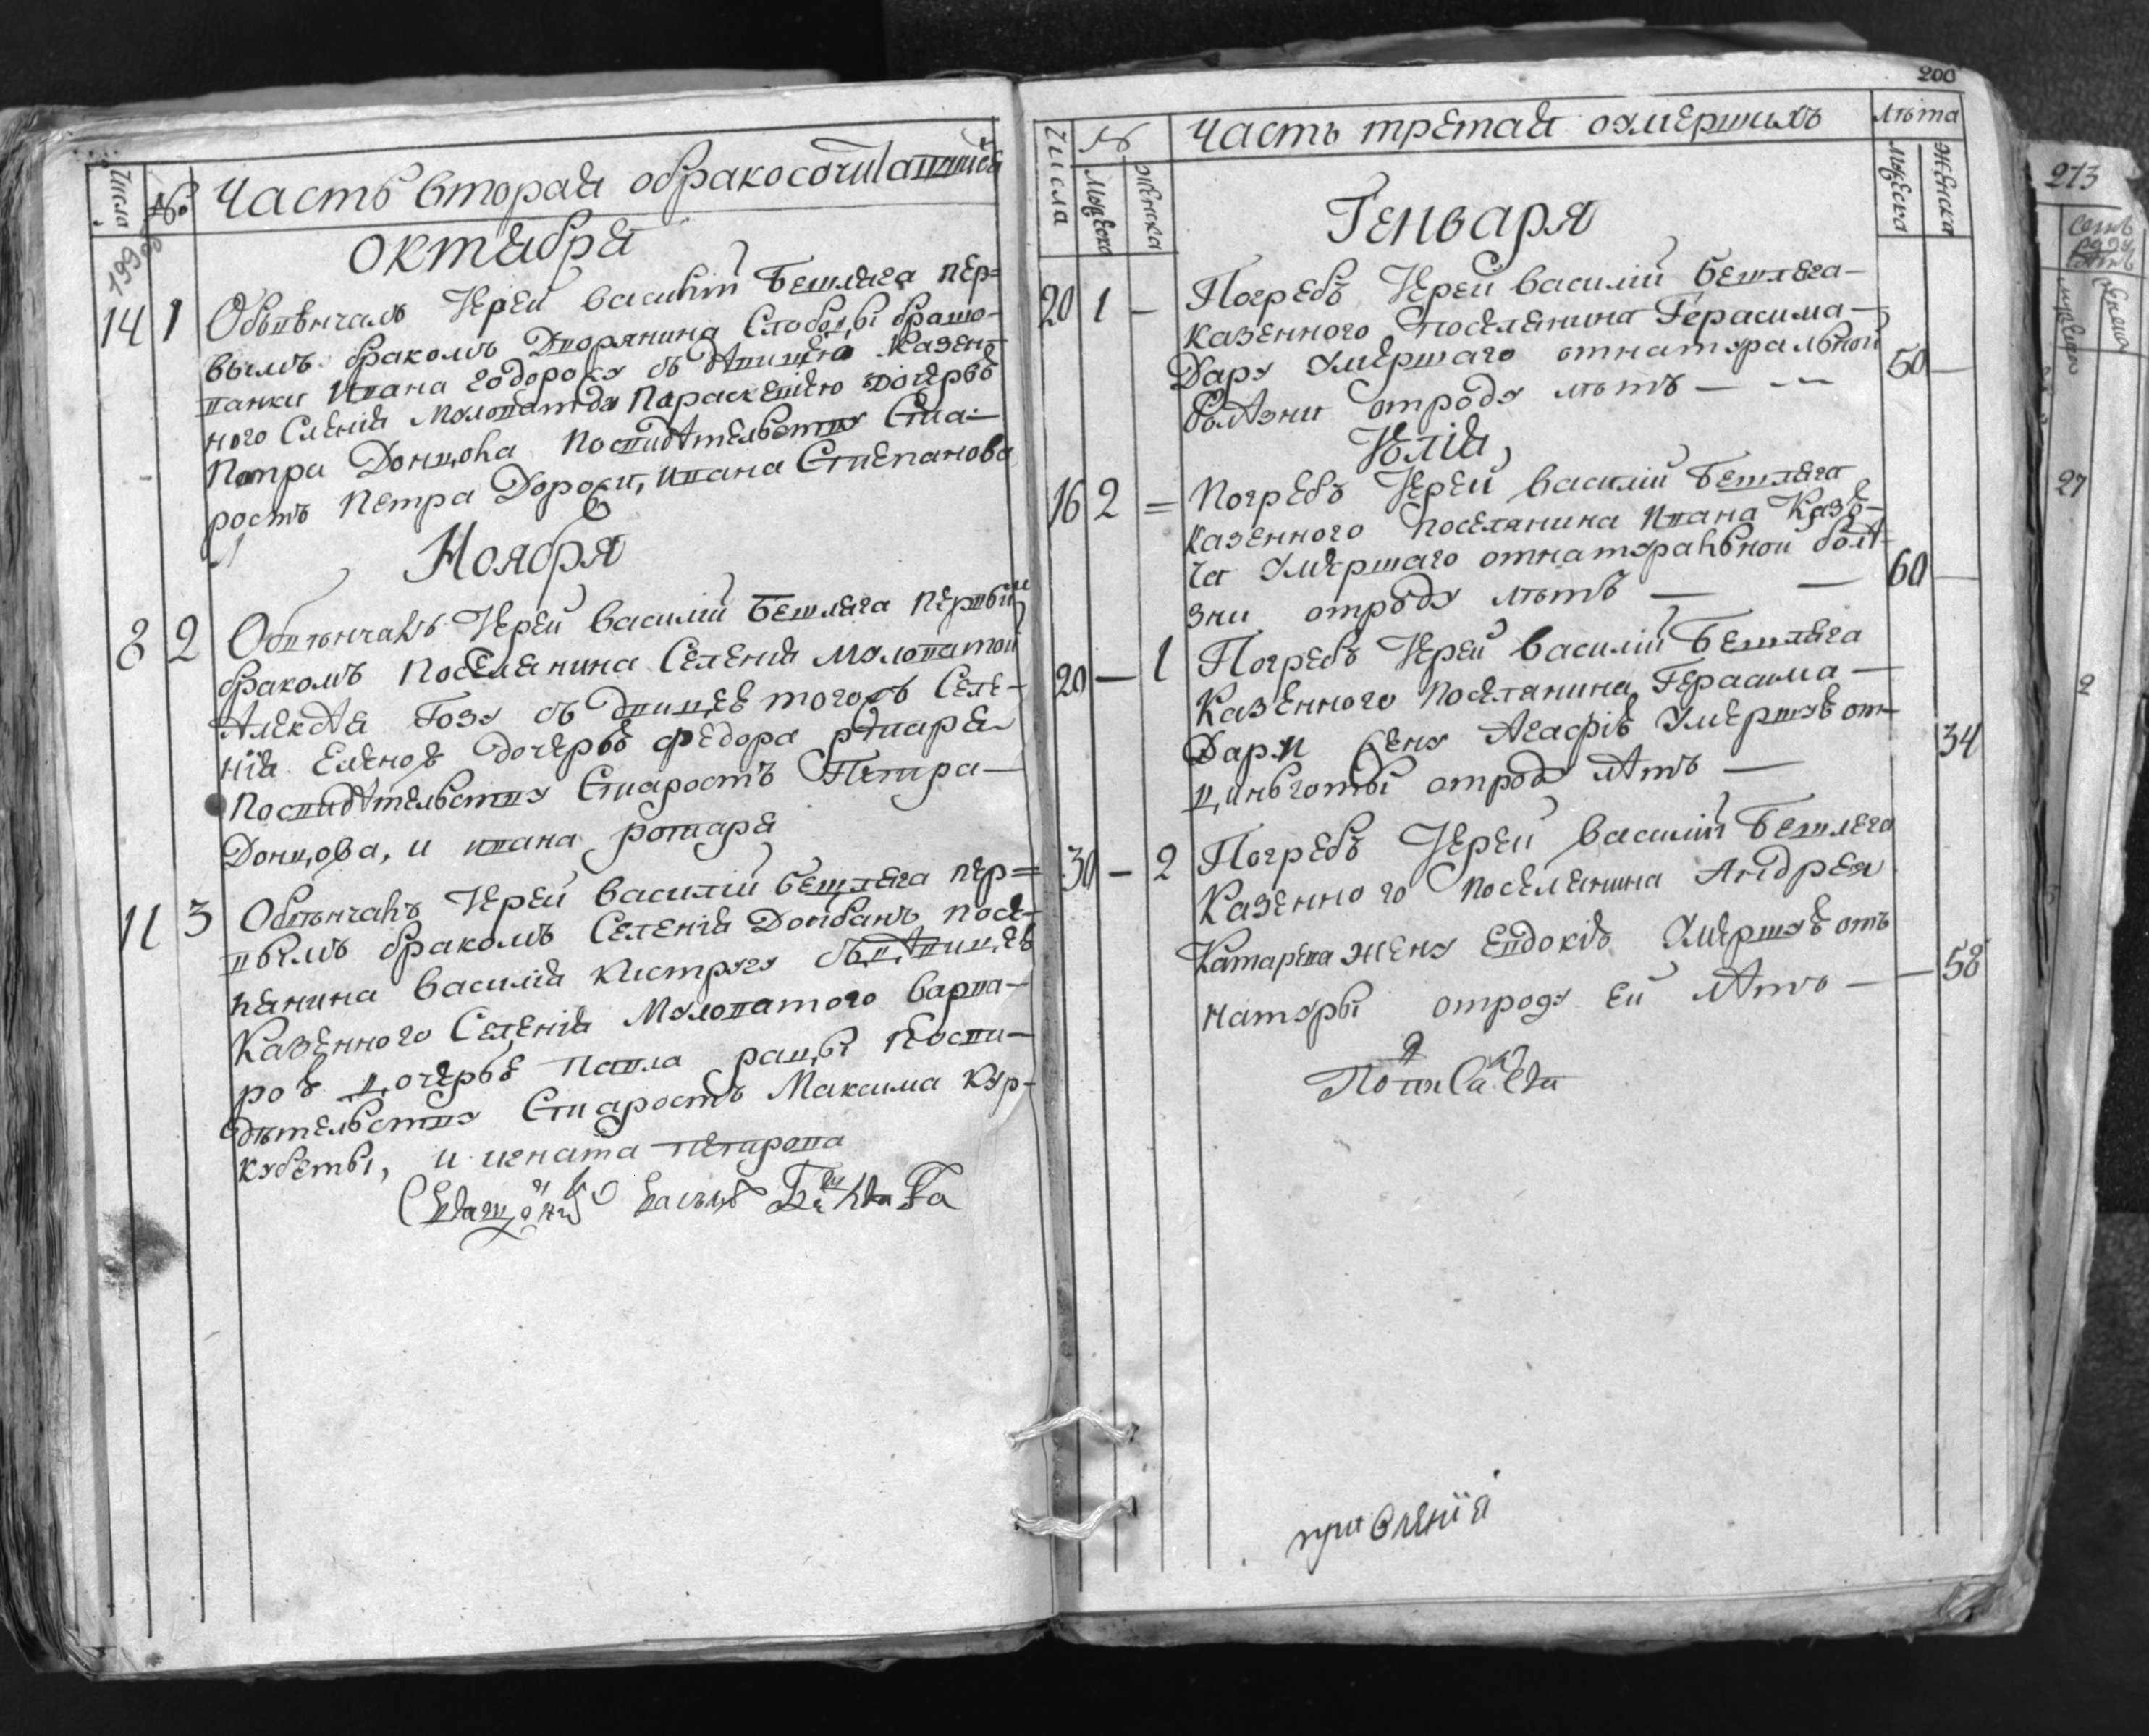 Числа № Часть вторая о бракосочитавшихся
199
Октября
14 1 Обвѣнчалъ Иерей Василій Бешляга пер=
вымъ бракомъ Дворянина Слободы братю-
ванки Ивана Тодороку съ дѣвицею Казен-
ного Селенія Муловатъ Параскевіею дочерью
Петра Донцова Посвидѣтельству Ста-
ростъ Петра Дороки, ивана Степанова
Ноября
8 2 Обвѣнчалъ Иерей Василій Бешляга первым
бракомъ Поселянина Селенія Муловатой
Алексѣя Гозу съ девицею тогожъ Селе-
нія Еленою дочерью Федора ротаря
Посвидѣтельству Старостъ Петра
Донцова, и ивана ротаря
11 3 Обвѣнчалъ Иерей Василій Бешляга пер=
вымъ бракомъ Селенія Дойбанъ посе-
лянина Василія Кистругу съ дѣвицею
Казенного Селенія Муловатого Варва-
рою дочерью Павла рацы Посви-
дѣтельству Старостъ Максима Кур-
кубеты, и игната петрова
Священникъ Василій Бешляга
200
Числа № Часть третая о умершихъ Лѣта
Мужеска Женска Мужеска Женска
Генваря
20 1 — Погребъ Иерей Василій Бешляга
Казенного поселянина Герасима
Дару Умершаго отнатуральной
болѣзни отроду лѣтъ — 50 —
Юлія
16 2 = Погребъ Иерей Василій Бешляга
Казенного поселянина Ивана Казъ-
ка Умершаго отнатуральной болѣ-
зни отроду лѣтъ — 60 —
20 — 1 Погребъ Иерей Василій Бешляга
Казенного Поселянина Герасима
Дари жену Агафію Умершую от
цинъготы отроду лѣтъ — 34
30 — 2 Погребъ Иерей Василій Бешляга
Казенного поселянина Андрея
Катарева жену Евдокію Умершую отъ
натуры отроду ей лѣтъ — — 58
213
27
2